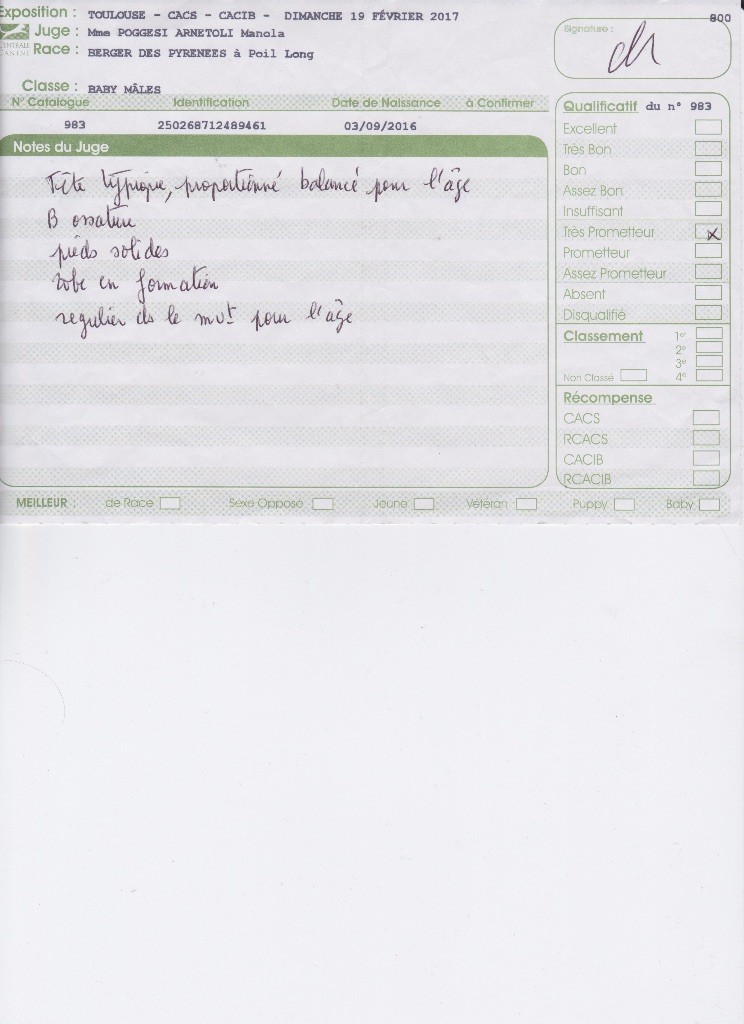 Exposition : TOULOUSE - CACS - CACIB - DIMANCHE 19 FÉVRIER 2017
800
Juge : Mme POGGESI ARNETOLI Manola
Signature :
CENTRALE
CANINE
Race : BERGER DES PYRENEES à Poil Long
Classe : BABY MÂLES
N° Catalogue Identification Date de Naissance à Confirmer
983 250268712489461 03/09/2016
Notes du Juge
Tête typique, proportionné balancé pour l'âge
B ossature
pieds solides
robe en formation
regulier ds le mvt pour l'âge
Qualificatif du n° 983
Excellent
Très Bon
Bon
Assez Bon
Insuffisant
Très Prometteur X
Prometteur
Assez Prometteur
Absent
Disqualifié
Classement 1er
2e
3e
Non Classé 4e
Récompense
CACS
RCACS
CACIB
RCACIB
MEILLEUR : de Race Sexe Opposé Jeune Vétéran Puppy Baby